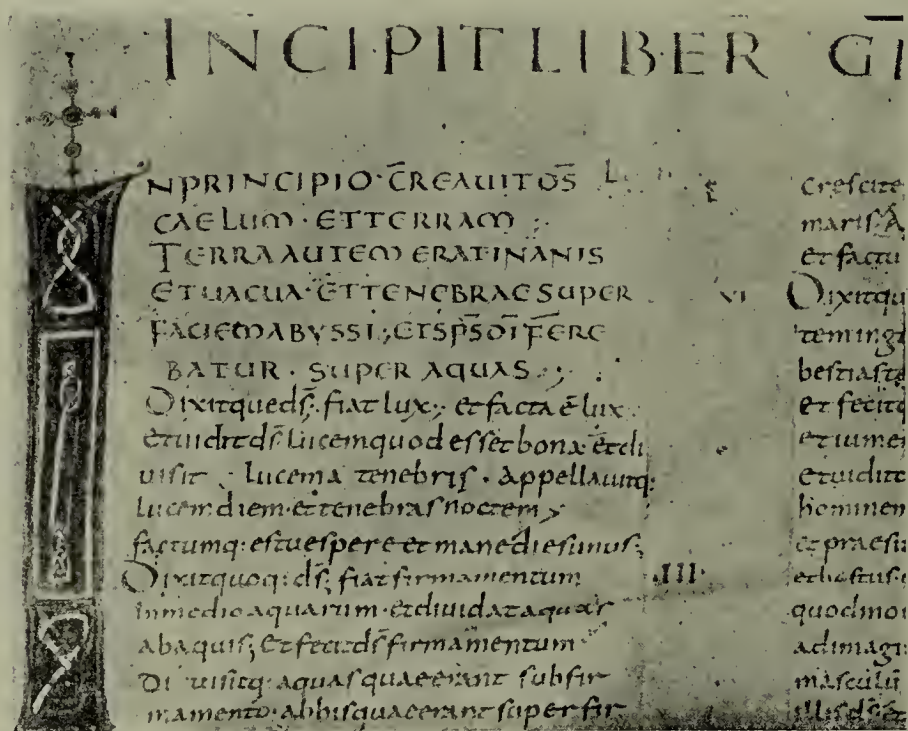 INCIPIT LIBER G
NPRINCIPIO · C̄REAUIT D̄S̄
CAELUM · ET TERRAM ;
TERRA AUTEM ERAT INANIS
ET UACUA · ET TENEBRAE SUPER
FACIEM ABYSSI ; ET SP̄S DĪ FERE
BATUR · SUPER AQUAS ·;
Dixitque ds̄ · fiat lux ; et facta ē lux
et uidit ds̄ lucem quod esset bona · et di
uisit ; lucem a tenebris · Appellauitq:
lucem diem · et tenebras noctem ;
factumq: est uespere et mane dies unus ;
Dixit quoq: ds̄ ; fiat firmamentum
in medio aquarum · et diuidat aquas
ab aquis ; Et fecit ds̄ firmamentum
Di uisitq: aquas quae erant sub fir
mamento · ab his quae erant super fir
III
VI
Crescite
maris · A
et factu
Dixitqu
bestias te
et fecitq
et iumen
et uidit
hominem
et praesi
quod mou
ad imagi
masculū